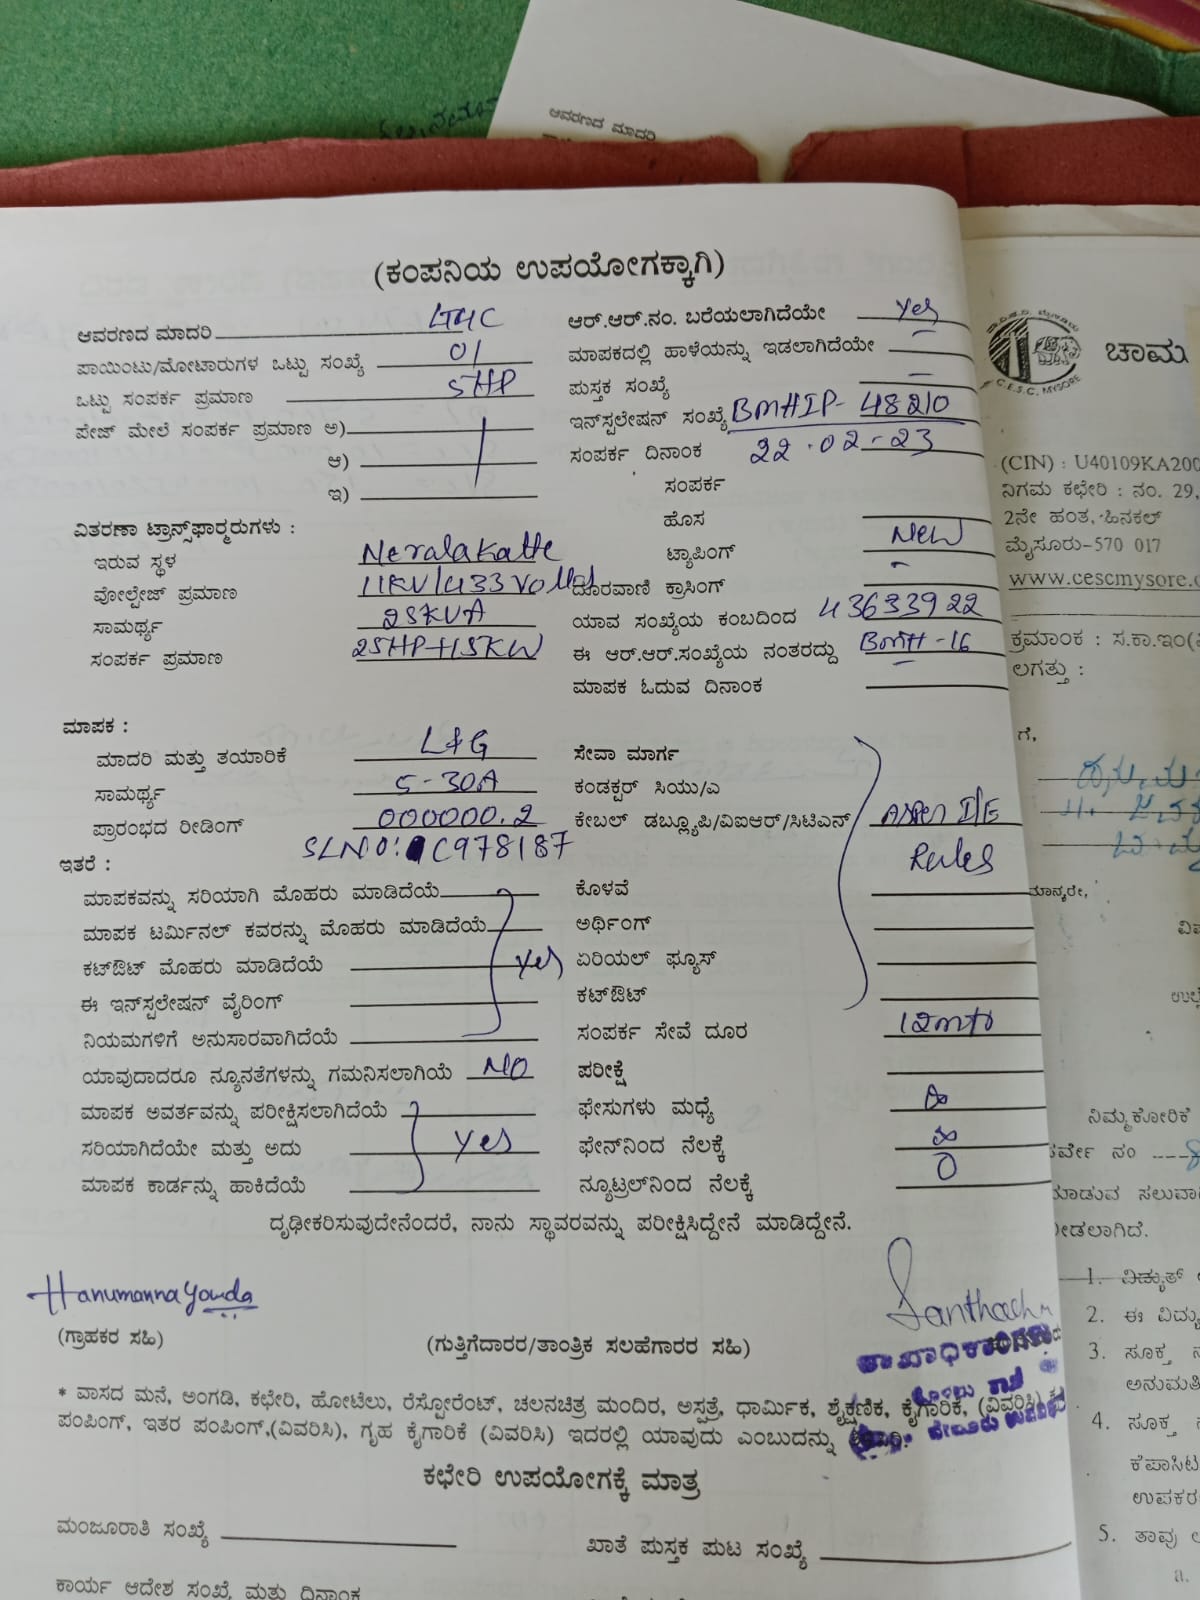 ಆವರಣದ ಮಾದರಿ
(ಕಂಪನಿಯ ಉಪಯೋಗಕ್ಕಾಗಿ)
ಆವರಣದ ಮಾದರಿ LT4C ಆರ್.ಆರ್.ನಂ. ಬರೆಯಲಾಗಿದೆಯೇ Yes
ಪಾಯಿಂಟು/ಮೋಟಾರುಗಳ ಒಟ್ಟು ಸಂಖ್ಯೆ 01 ಮಾಪಕದಲ್ಲಿ ಹಾಳೆಯನ್ನು ಇಡಲಾಗಿದೆಯೇ —
ಒಟ್ಟು ಸಂಪರ್ಕ ಪ್ರಮಾಣ 5HP ಪುಸ್ತಕ ಸಂಖ್ಯೆ —
ಪೇಜ್ ಮೇಲೆ ಸಂಪರ್ಕ ಪ್ರಮಾಣ ಅ) ಇನ್‌ಸ್ಟಲೇಷನ್ ಸಂಖ್ಯೆ BMHIP-48210
ಆ) ಸಂಪರ್ಕ ದಿನಾಂಕ 22.02-23
ಇ) ಸಂಪರ್ಕ
ವಿತರಣಾ ಟ್ರಾನ್ಸ್‌ಫಾರ್ಮರುಗಳು : ಹೊಸ
ಇರುವ ಸ್ಥಳ Neralakatte ಟ್ಯಾಪಿಂಗ್ New
ವೋಲ್ಟೇಜ್ ಪ್ರಮಾಣ 11KV/433 Volts ದೂರವಾಣಿ ಕ್ರಾಸಿಂಗ್ -
ಸಾಮರ್ಥ್ಯ 25KVA ಯಾವ ಸಂಖ್ಯೆಯ ಕಂಬದಿಂದ 43633922
ಸಂಪರ್ಕ ಪ್ರಮಾಣ 25HP+15KW ಈ ಆರ್.ಆರ್.ಸಂಖ್ಯೆಯ ನಂತರದ್ದು BMH-16
ಮಾಪಕ ಓದುವ ದಿನಾಂಕ —
ಮಾಪಕ :
ಮಾದರಿ ಮತ್ತು ತಯಾರಿಕೆ L&G ಸೇವಾ ಮಾರ್ಗ
ಸಾಮರ್ಥ್ಯ 5-30A ಕಂಡಕ್ಟರ್ ಸಿಯು/ಎ
ಪ್ರಾರಂಭದ ರೀಡಿಂಗ್ 000000.2 ಕೇಬಲ್ ಡಬ್ಲ್ಯೂಪಿ/ವಿಐಆರ್/ಸಿಟಿಎಸ್ I/E
SLNO: C978187 Rules
ಇತರೆ :
ಮಾಪಕವನ್ನು ಸರಿಯಾಗಿ ಮೊಹರು ಮಾಡಿದೆಯೆ ಕೊಳವೆ
ಮಾಪಕ ಟರ್ಮಿನಲ್ ಕವರನ್ನು ಮೊಹರು ಮಾಡಿದೆಯೆ ಅರ್ಥಿಂಗ್
ಕಟ್‌ಔಟ್ ಮೊಹರು ಮಾಡಿದೆಯೆ Yes ಏರಿಯಲ್ ಫ್ಯೂಸ್
ಈ ಇನ್‌ಸ್ಟಲೇಷನ್ ವೈರಿಂಗ್ ಕಟ್‌ಔಟ್
ನಿಯಮಗಳಿಗೆ ಅನುಸಾರವಾಗಿದೆಯೆ ಸಂಪರ್ಕ ಸೇವೆ ದೂರ 12mtr
ಯಾವುದಾದರೂ ನ್ಯೂನತೆಗಳನ್ನು ಗಮನಿಸಲಾಗಿಯೆ NO ಪರೀಕ್ಷೆ
ಮಾಪಕ ಅವರ್ತವನ್ನು ಪರೀಕ್ಷಿಸಲಾಗಿದೆಯೆ ಫೇಸುಗಳು ಮಧ್ಯೆ ∞
ಸರಿಯಾಗಿದೆಯೇ ಮತ್ತು ಅದು Yes ಫೇನ್‌ನಿಂದ ನೆಲಕ್ಕೆ ∞
ಮಾಪಕ ಕಾರ್ಡನ್ನು ಹಾಕಿದೆಯೆ ನ್ಯೂಟ್ರಲ್‌ನಿಂದ ನೆಲಕ್ಕೆ 0
ದೃಢೀಕರಿಸುವುದೇನೆಂದರೆ, ನಾನು ಸ್ಥಾವರವನ್ನು ಪರೀಕ್ಷಿಸಿದ್ದೇನೆ ಮಾಡಿದ್ದೇನೆ.
Hanumannagouda
(ಗ್ರಾಹಕರ ಸಹಿ) (ಗುತ್ತಿಗೆದಾರರ/ತಾಂತ್ರಿಕ ಸಲಹೆಗಾರರ ಸಹಿ)
* ವಾಸದ ಮನೆ, ಅಂಗಡಿ, ಕಛೇರಿ, ಹೋಟೆಲು, ರೆಸ್ಟೋರೆಂಟ್, ಚಲನಚಿತ್ರ ಮಂದಿರ, ಅಸ್ಪತ್ರೆ, ಧಾರ್ಮಿಕ, ಶೈಕ್ಷಣಿಕ, ಕೈಗಾರಿಕೆ, (ವಿವರಿಸಿ)
ಪಂಪಿಂಗ್, ಇತರ ಪಂಪಿಂಗ್,(ವಿವರಿಸಿ), ಗೃಹ ಕೈಗಾರಿಕೆ (ವಿವರಿಸಿ) ಇದರಲ್ಲಿ ಯಾವುದು ಎಂಬುದನ್ನು
ಕಛೇರಿ ಉಪಯೋಗಕ್ಕೆ ಮಾತ್ರ
ಮಂಜೂರಾತಿ ಸಂಖ್ಯೆ ಖಾತೆ ಪುಸ್ತಕ ಪುಟ ಸಂಖ್ಯೆ
ಕಾರ್ಯ ಆದೇಶ ಸಂಖ್ಯೆ ಮತ್ತು ದಿನಾಂಕ
C.E.S.C, MYSORE
ಚಾಮ
(CIN) : U40109KA200
ನಿಗಮ ಕಛೇರಿ : ನಂ. 29,
2ನೇ ಹಂತ, ಹಿನಕಲ್
ಮೈಸೂರು-570 017
www.cescmysore.
ಕ್ರಮಾಂಕ : ಸ.ಕಾ.ಇಂ(
ಲಗತ್ತು :
ಗೆ,
ಮಾನ್ಯರೇ,
ನಿಮ್ಮ ಕೋರಿಕೆ
ಸರ್ವೇ ನಂ
ಮಾಡುವ ಸಲುವಾ
ನೀಡಲಾಗಿದೆ.
1. ವಿದ್ಯುತ್
2. ಈ ವಿದ್ಯು
3. ಸೂಕ್ತ
ಅನುಮತಿ
4. ಸೂಕ್ತ
ಕೆಪಾಸಿಟ
ಉಪಕರ
5. ತಾವು
a.